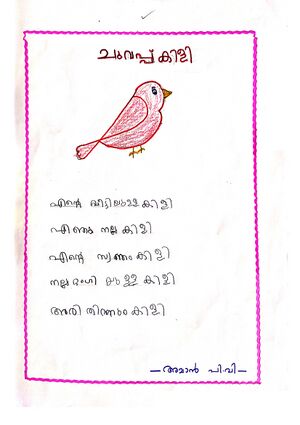 ചുവപ്പ് കിളി
എന്റെ വീട്ടിലുള്ള കിളി
എന്തു നല്ല കിളി
എന്റെ സ്വന്തം കിളി
നല്ല ഭംഗി യുള്ള കിളി
അരി തിന്നും കിളി
- അമാൻ പി.വി -